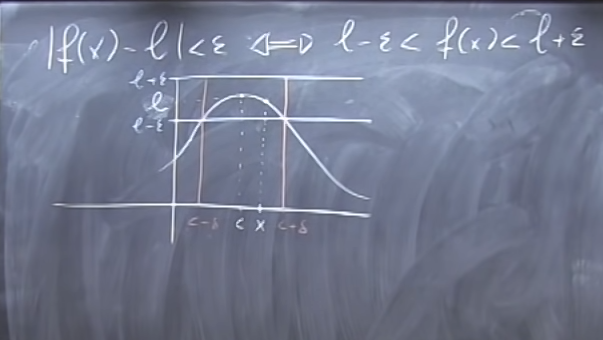 |f(x) - l| < ε ⟺ l - ε < f(x) < l + ε
l+ε
l
l-ε
c-δ c x c+δ